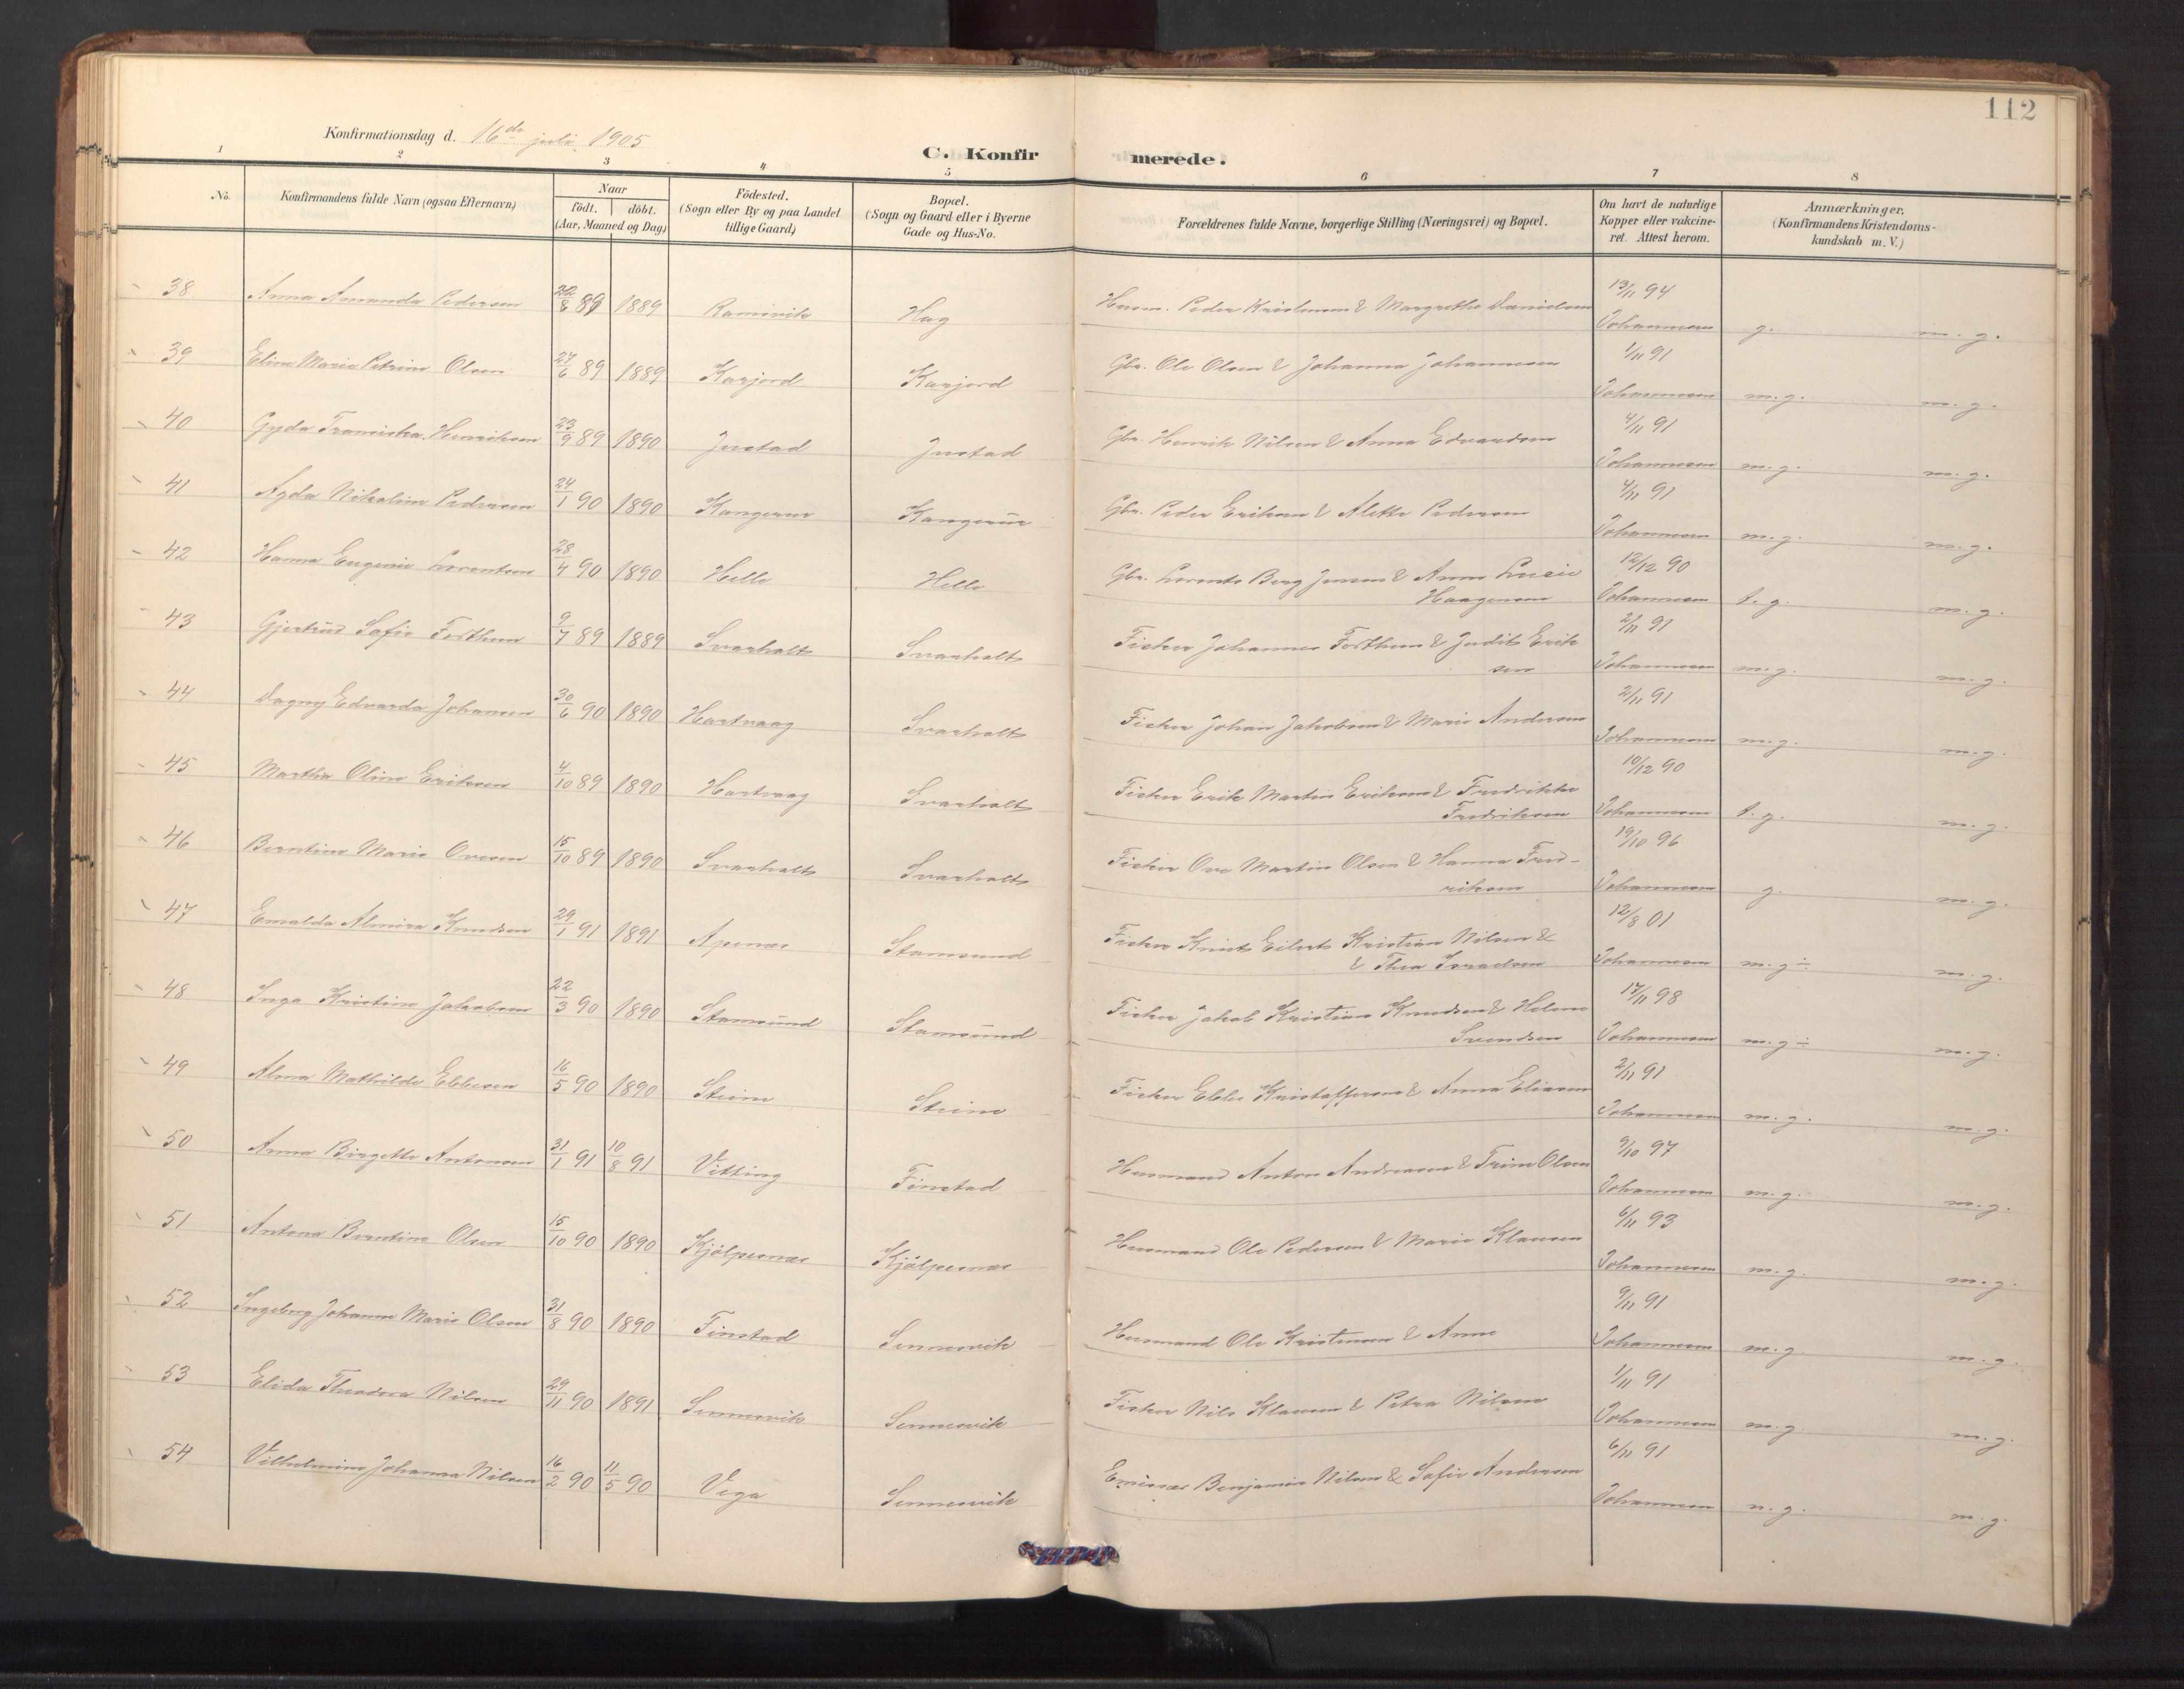 112
Konfirmationsdag d. 16de juli 1905
C. Konfirmerede.
1 2 3 4 5 6 7 8
No. Konfirmandens fulde Navn (ogsaa Efternavn) Naar födt. döbt. (Aar, Maaned og Dag) Födested. (Sogn eller By og paa Landet tillige Gaard) Bopæl. (Sogn og Gaard eller i Byerne Gade og Hus-No. Forældrenes fulde Navne, borgerlige Stilling (Næringsvei) og Bopæl. Om havt de naturlige Kopper eller vakcineret. Attest herom. Anmærkninger. (Konfirmandens Kristendomskundskab m. V.)
38 Anna Amanda Pedersen 6 89 1889 Ramsvik Hag Husm. Peder Kristensen & Margrethe Danielsen 13/11 94 Johannesen g. m. g.
39 Eline Marie Petrine Olsen 27/6 89 1889 Karjord Karjord Gbr. Ole Olsen & Johanna Johannesen 1/11 91 Johannesen m. g. m. g.
40 Gyda Fransiska Henriksen 23/9 89 1890 Justad Justad Gbr. Henrik Nilsen & Anna Edvardsen 4/11 91 Johannesen m. g. m. g.
41 Agda Nikoline Pedersen 24/1 90 1890 Kangerur Kangerur Gbr. Peder Eriksen & Alette Pedersen 4/11 91 Johannesen m. g. m. g.
42 Hanna Eugenie Lorentsen 28/4 90 1890 Helle Helle Gbr. Lorents Berg Jensen & Anna Lucie
Haagensen 12/12 90 Johannesen t. g. m. g.
43 Gjertrud Sofie Forthun 9/7 89 1889 Svarholt Svarholt Fisker Johannes Forthun & Judit Erik
sen 2/11 91 Johannesen m. g. m. g.
44 Dagny Edvarda Johansen 30/6 90 1890 Hartvaag Svarholt Fisker Johan Jakobsen & Marie Andersen 2/11 91 Johannesen m. g. m. g.
45 Martha Oline Eriksen 4/10 89 1890 Hartvaag Svarholt Fisker Erik Martin Eriksen & Fredrikke
Fredriksen 10/12 90 Johannesen t. g. m. g.
46 Berntine Marie Ovesen 15/10 89 1890 Svarholt Svarholt Fisker Ove Martin Olsen & Hanna Fred-
riksen 19/10 96 Johannesen g. m. g.
47 Emalda Almira Knudsen 29/1 91 1891 Apenes Stamsund Fisker Knut Eilert Kristian Nilsen &
& Thea Israelsen 12/8 01 Johannesen m. g ÷ m. g.
48 Inga Kristine Jakobsen 22/3 90 1890 Stamsund Stamsund Fisker Jakob Kristian Knudsen & Helene
Svendsen 17/11 98 Johannesen m. g ÷ m. g.
49 Alma Mathilde Ebbesen 16/5 90 1890 Steine Steine Fisker Ebbe Kristoffersen & Anna Eliasen 2/11 91 Johannesen m. g. m. g.
50 Anna Birgette Antonsen 31/1 91 10/8 91 Vitting Finstad Husmand Anton Andreasen & Trine Olsen 9/10 97 Johannesen m. g. m. g.
51 Antona Berntine Olsen 15/10 90 1890 Kjölpesnes Kjölpesnes Husmand Ole Pedersen & Marie Klausen 6/11 93 Johannesen m. g. m. g.
52 Ingeborg Johanne Marie Olsen 31/8 90 1890 Finstad Sennesvik Husmand Ole Kristensen & Anne 9/11 91 Johannesen m. g. m. g.
53 Elida Theodora Nilsen 29/11 90 1891 Sennesvik Sennesvik Fisker Nils Klausen & Petra Nilsen 1/11 91 Johannesen m. g. m. g.
54 Vilhelmine Johanna Nilsen 16/2 90 11/5 90 Vega Sennesvik Emissær Benjamin Nilsen & Sofie Andersen 6/11 91 Johannesen m. g. m. g.